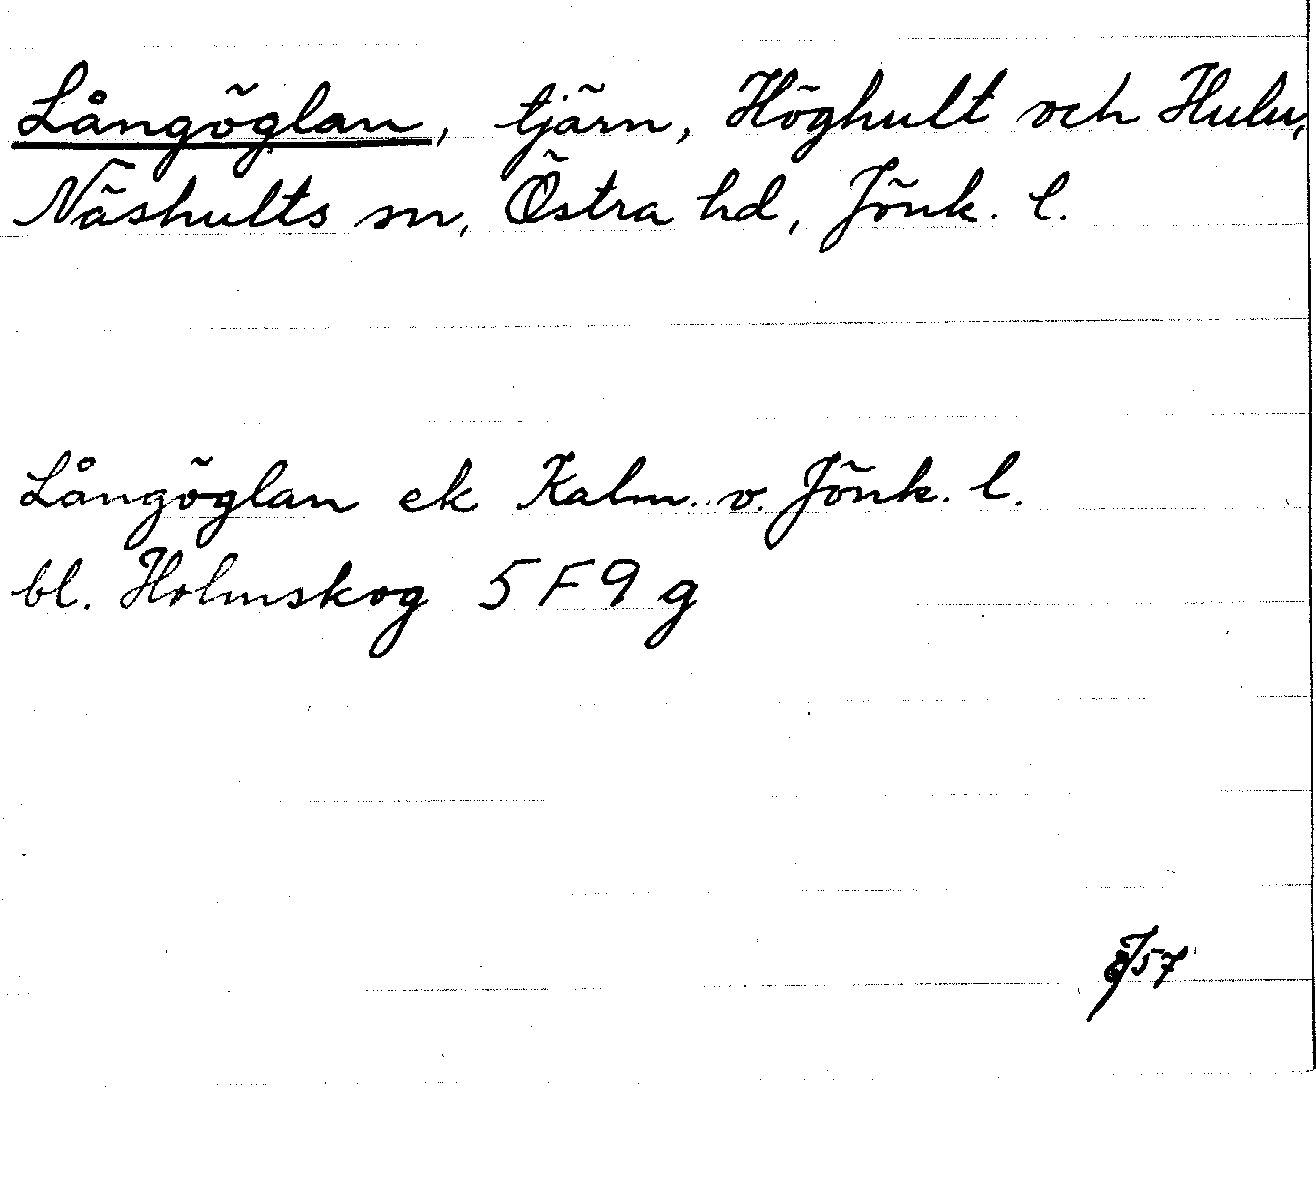 Långöglan, tjärn, Höghult och Hulu,
Näshults sn, Östra hd, Jönk. l.
Långöglan ek Kalm. v. Jönk. l.
bl. Holmskog 5 F 9 g